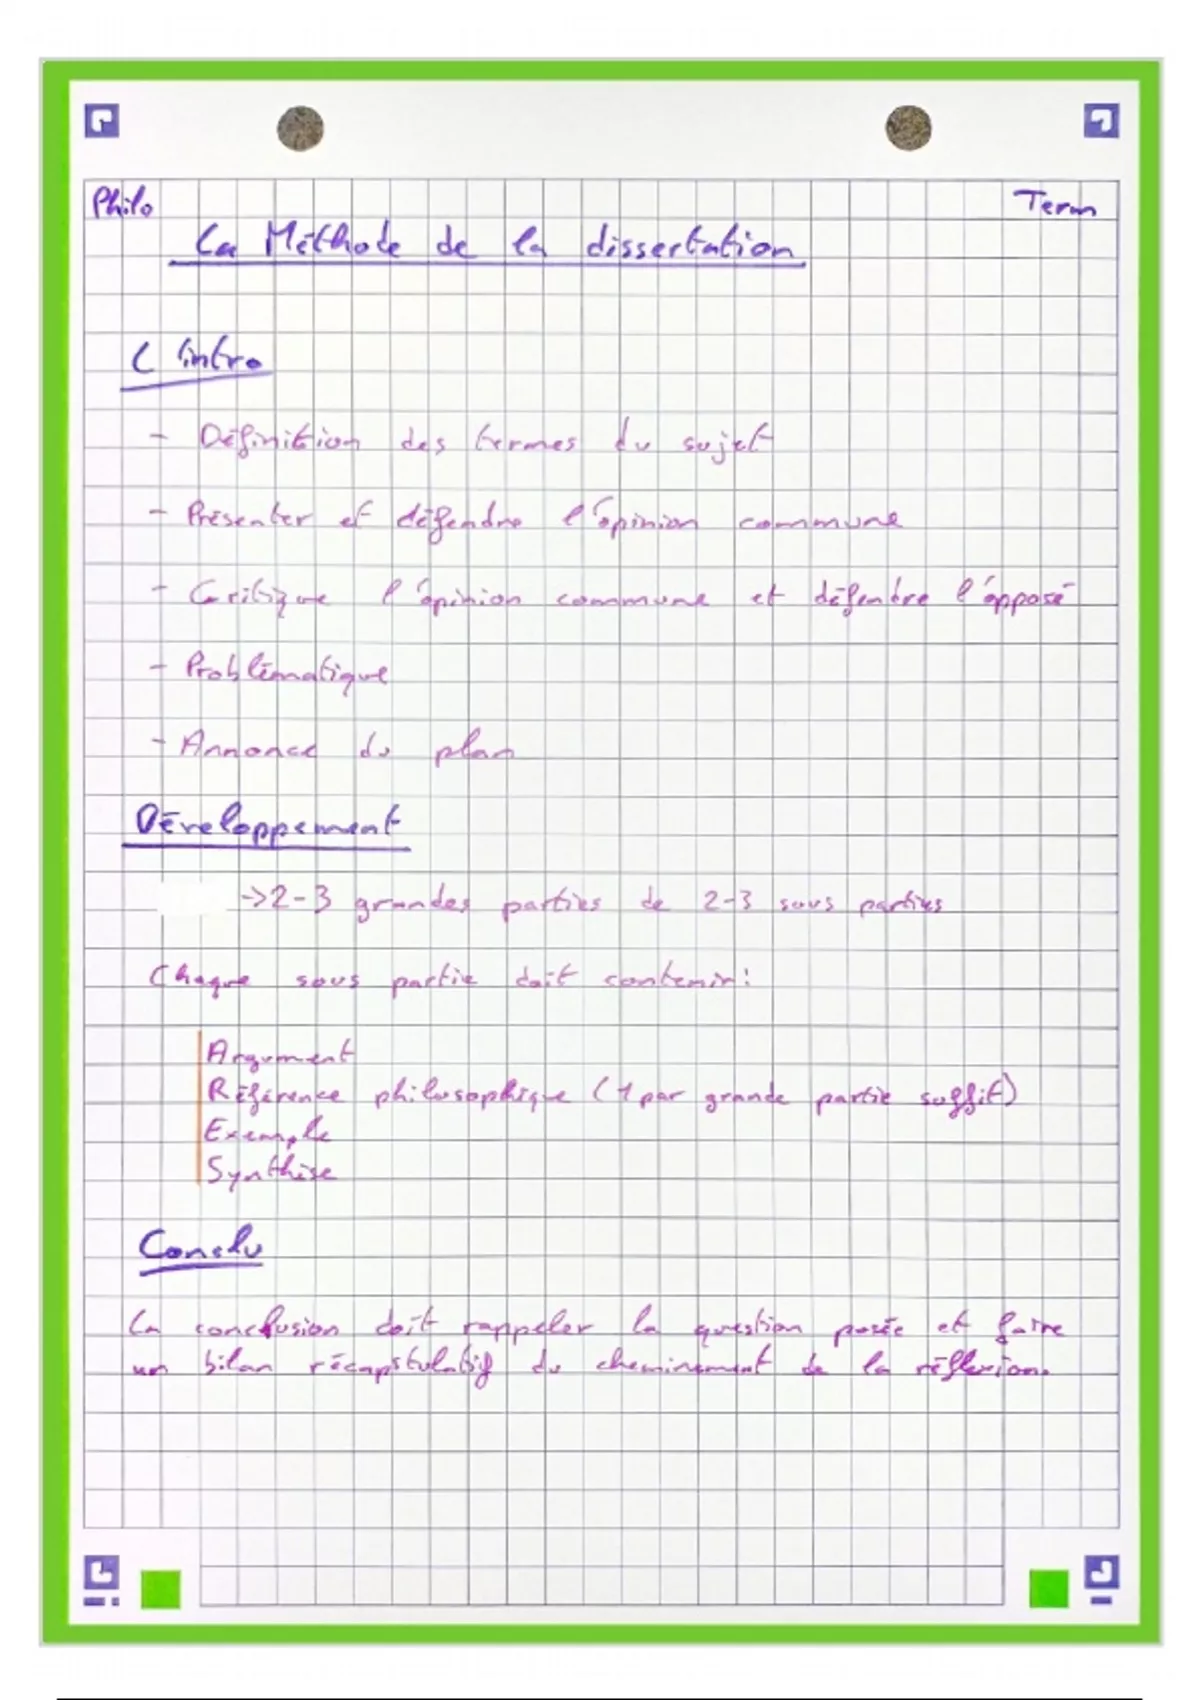 Philo
Term
La Méthode de la dissertation
L'intro
- Définition des termes du sujet
- Présenter et défendre l'opinion commune
- Critique l'opinion commune et défendre l'opposé
- Problématique
- Annonce du plan
Développement
->2-3 grandes parties de 2-3 sous parties
Chaque sous partie doit contenir:
Argument
Référence philosophique (1 par grande partie suffit)
Exemple
Synthèse
Conclu
La conclusion doit rappeler la question posée et faire
un bilan récapitulatif du cheminement de la réflexion.